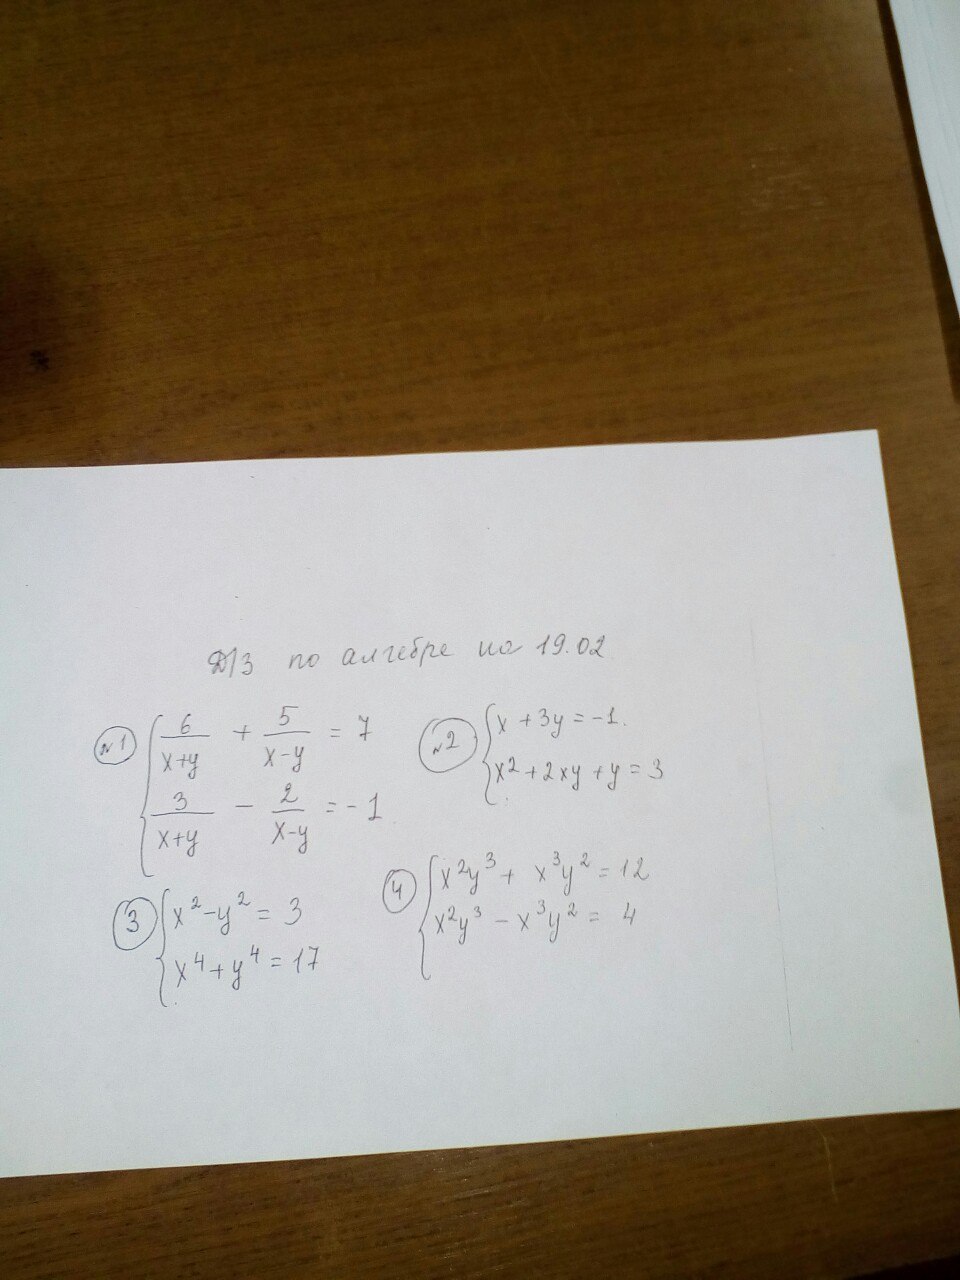 Д/З по алгебре на 19.02
№1 { 6/(x+y) + 5/(x-y) = 7
3/(x+y) - 2/(x-y) = -1
№2 { x + 3y = -1.
x² + 2xy + y = 3
3 { x² - y² = 3
x⁴ + y⁴ = 17
4 { x²y³ + x³y² = 12
x²y³ - x³y² = 4